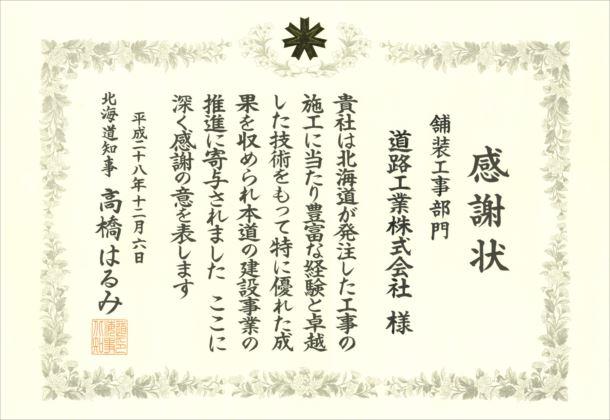 感謝状
舗装工事部門
道路工業株式会社 様
貴社は北海道が発注した工事の
施工に当たり豊富な経験と卓越
した技術をもって特に優れた成
果を収められ本道の建設事業の
推進に寄与されました ここに
深く感謝の意を表します
平成二十八年十二月六日
北海道知事 高橋はるみ